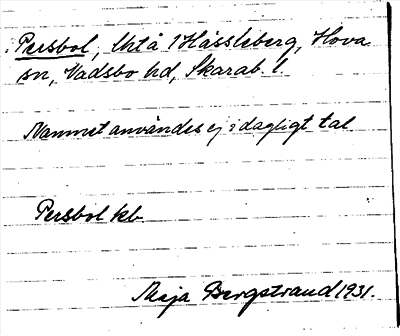 Persbol, lht å Hässleberg, Hova
sn, Vadsbo hd, Skarab. l.
Namnet användes ej i dagligt tal
Persbol kb.
Maja Bergstrand 1931.